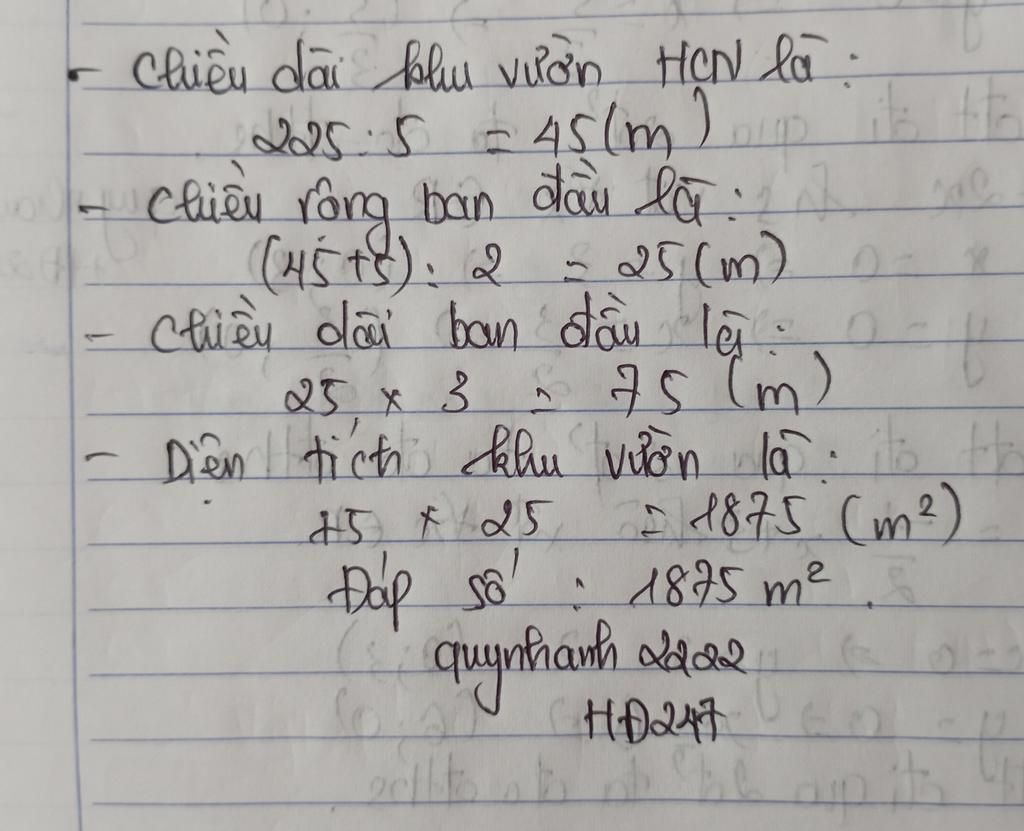 - Chiều dài khu vườn HCN là :
225 : 5 = 45 (m)
- Chiều rộng ban đầu là :
(45 + 5) : 2 = 25 (m)
- Chiều dài ban đầu là :
25 x 3 = 75 (m)
- Diện tích khu vườn là :
75 x 25 = 1875 (m²)
Đáp số : 1875 m².
quynhanh 2222
HĐ247